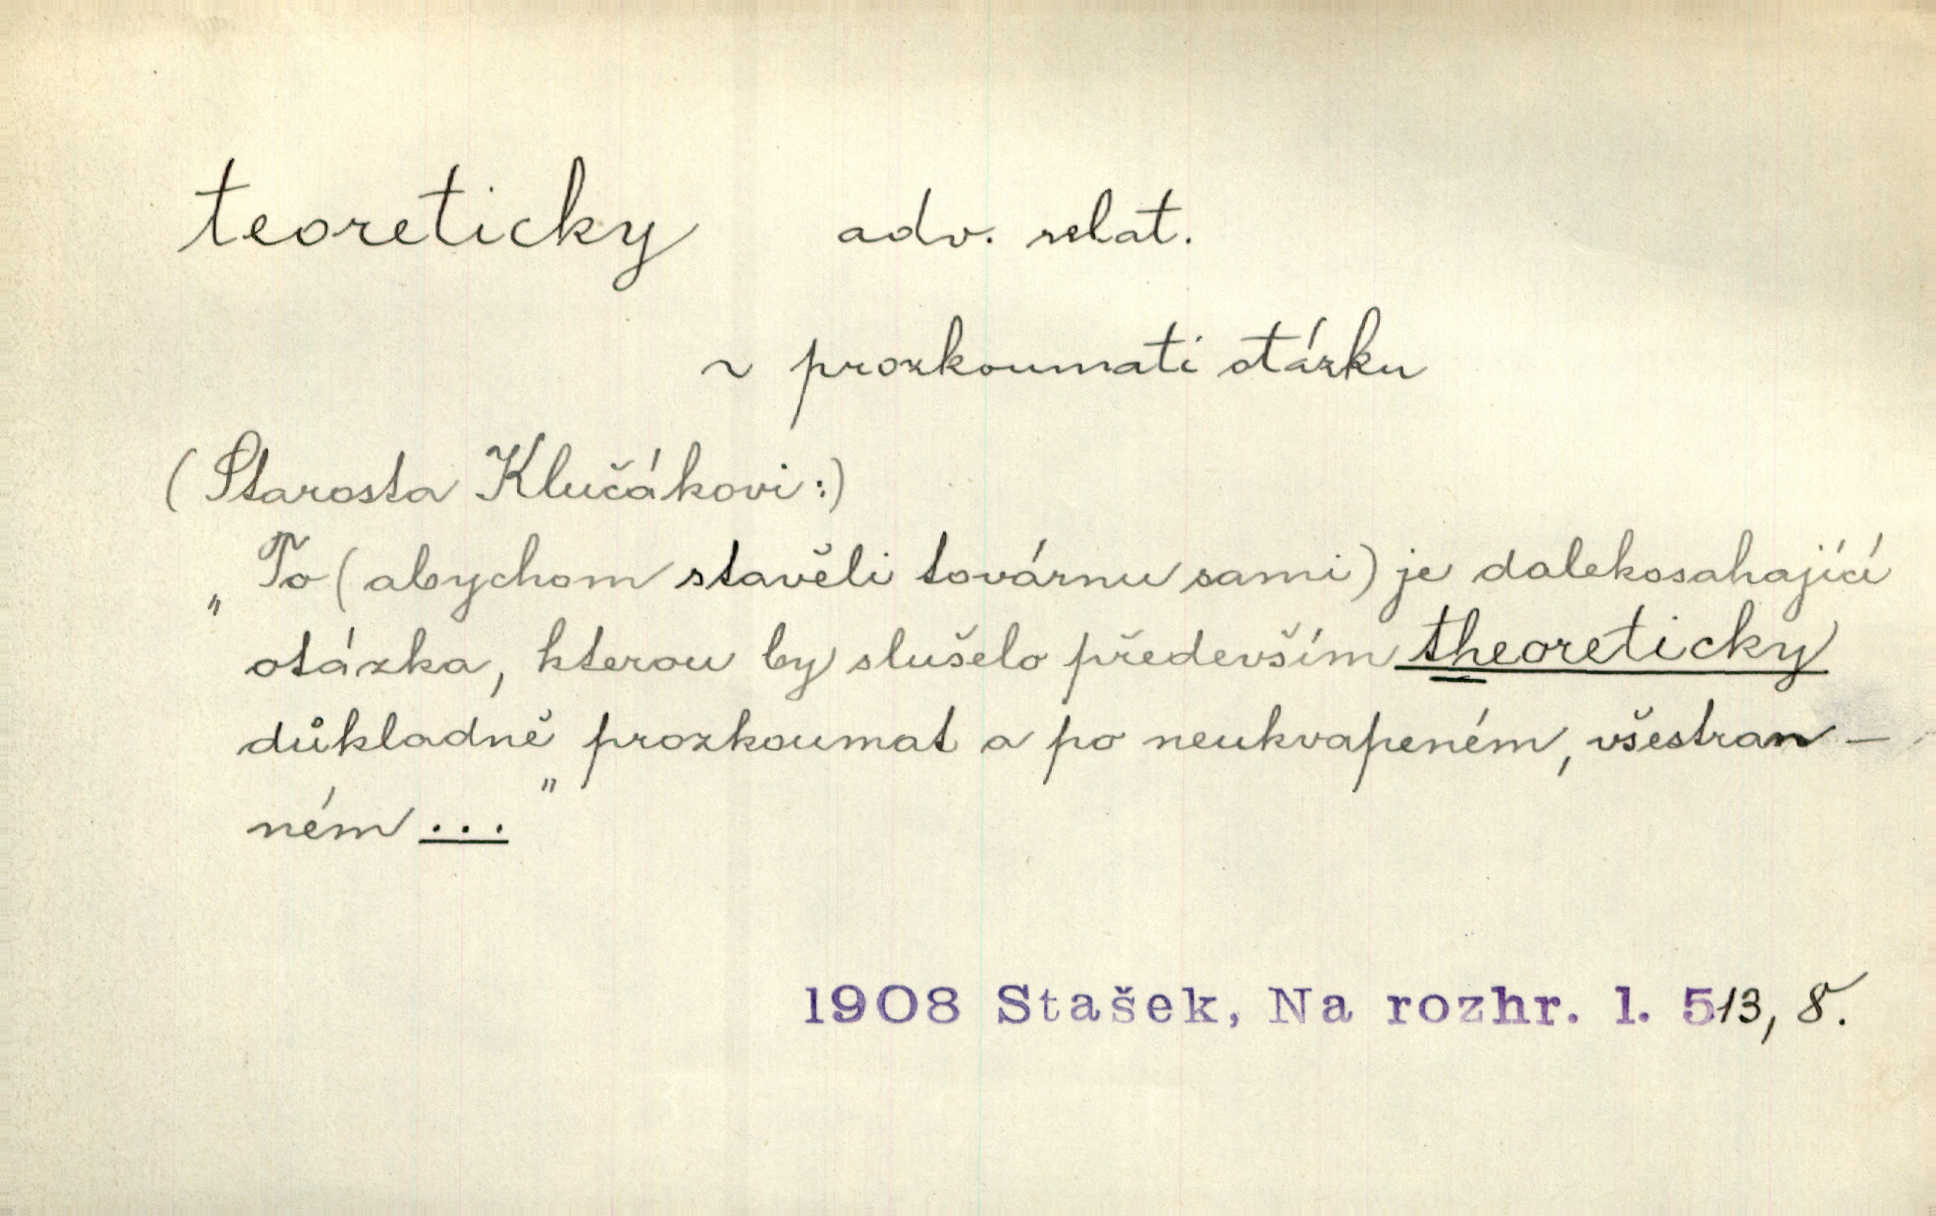 teoreticky adv. relat.
~ prozkoumati otázku
(Starosta Klučákovi:)
„To (abychom stavěli továrnu sami) je dalekosahající
otázka, kterou by slušelo především theoreticky
důkladně prozkoumat a po neukvapeném, všestran-
ném ..."
1908 Stašek, Na rozhr. 1. 513, 8.